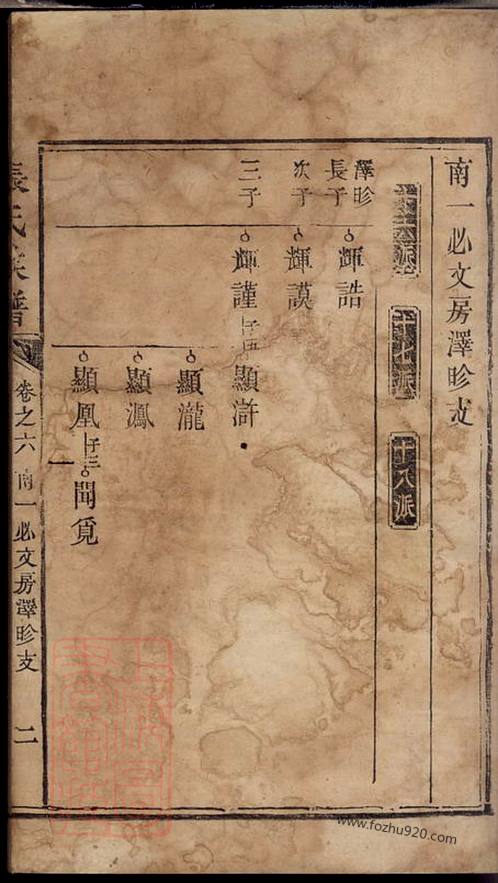 南一必文房澤昣支
十六派
十七派
十八派
澤昣
長子
輝誥
次子
輝謨
三子
輝謹
子四
顯滸
顯瀧
顯渢
顯凰
子三
聞覓
張氏族譜
卷之六
南一必文房澤昣支
二
www.fozhu920.com